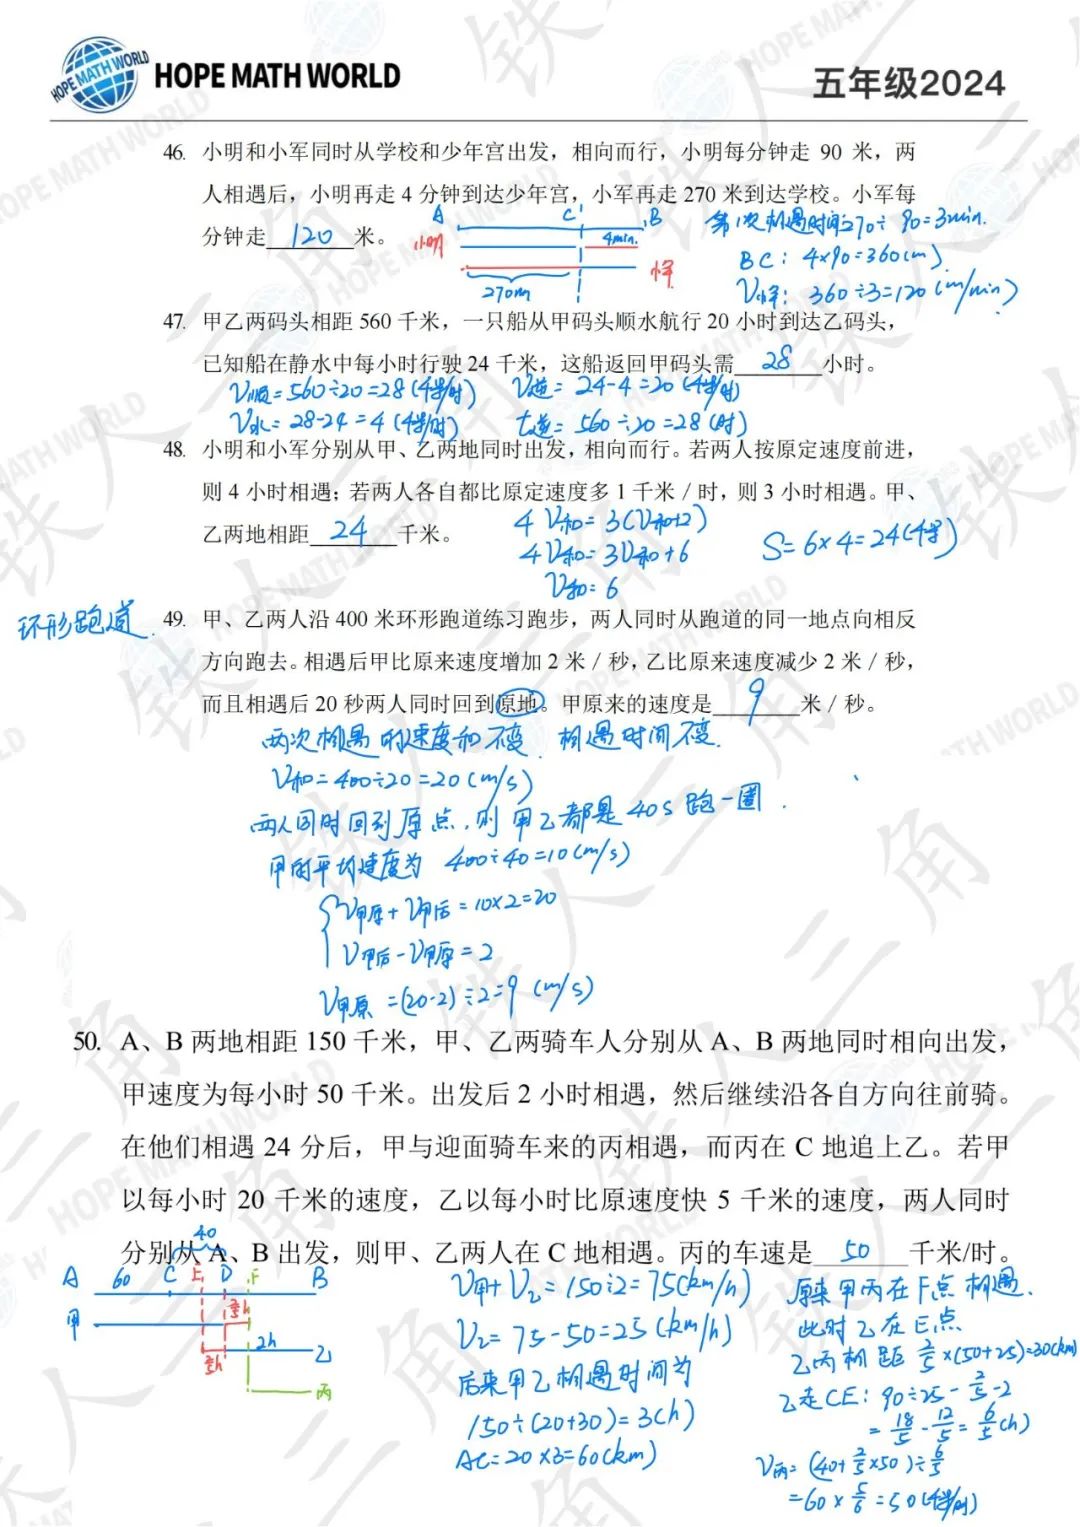 HOPE MATH WORLD
HOPE MATH WORLD
五年级2024
46. 小明和小军同时从学校和少年宫出发，相向而行，小明每分钟走 90 米，两
人相遇后，小明再走 4 分钟到达少年宫，小军再走 270 米到达学校。小军每
分钟走 120 米。
A C B
小明
4min.
小军
270m
第1次相遇时间:270÷90=3min.
BC: 4×90=360(m)
V小军: 360÷3=120(m/min)
47. 甲乙两码头相距 560 千米，一只船从甲码头顺水航行 20 小时到达乙码头，
已知船在静水中每小时行驶 24 千米，这船返回甲码头需 28 小时。
V顺=560÷20=28(千米/时) V逆=24-4=20(千米/时)
V水=28-24=4(千米/时) t逆=560÷20=28(时)
48. 小明和小军分别从甲、乙两地同时出发，相向而行。若两人按原定速度前进，
则 4 小时相遇；若两人各自都比原定速度多 1 千米／时，则 3 小时相遇。甲、
乙两地相距 24 千米。
4V和=3(V和+2)
4V和=3V和+6
V和=6
S=6×4=24(千米)
环形跑道.
49. 甲、乙两人沿 400 米环形跑道练习跑步，两人同时从跑道的同一地点向相反
方向跑去。相遇后甲比原来速度增加 2 米／秒，乙比原来速度减少 2 米／秒，
而且相遇后 20 秒两人同时回到原地。甲原来的速度是 9 米／秒。
两次相遇的速度和不变 相遇时间不变.
V和=400÷20=20(m/s)
两人同时回到原点,则甲乙都是40s跑一圈.
甲的平均速度为 400÷40=10(m/s)
V甲原+V甲后=10×2=20
V甲后-V甲原=2
V甲原=(20-2)÷2=9(m/s)
50. A、B 两地相距 150 千米，甲、乙两骑车人分别从 A、B 两地同时相向出发，
甲速度为每小时 50 千米。出发后 2 小时相遇，然后继续沿各自方向往前骑。
在他们相遇 24 分后，甲与迎面骑车来的丙相遇，而丙在 C 地追上乙。若甲
以每小时 20 千米的速度，乙以每小时比原速度快 5 千米的速度，两人同时
分别从 A、B 出发，则甲、乙两人在 C 地相遇。丙的车速是 50 千米/时。
40
A 60 C E D F B
甲
2/5h
2h 乙
2/5h
丙
V甲+V乙=150÷2=75(km/h)
V乙=75-50=25(km/h)
后来甲乙相遇时间为
150÷(20+30)=3(h)
AC=20×3=60(km)
原来甲丙在F点相遇.
此时乙在E点
乙丙相距 2/5×(50+25)=30(km)
乙走CE: 90÷25-2/5-2
=18/5-12/5=6/5(h)
V丙=(40+2/5×50)÷6/5
=60×5/6=50(千米/时)
铁人三角